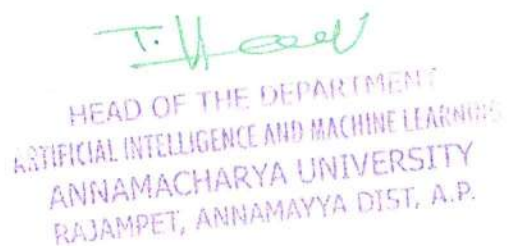 HEAD OF THE DEPARTMENT
ARTIFICIAL INTELLIGENCE AND MACHINE LEARNING
ANNAMACHARYA UNIVERSITY
RAJAMPET, ANNAMAYYA DIST, A.P.